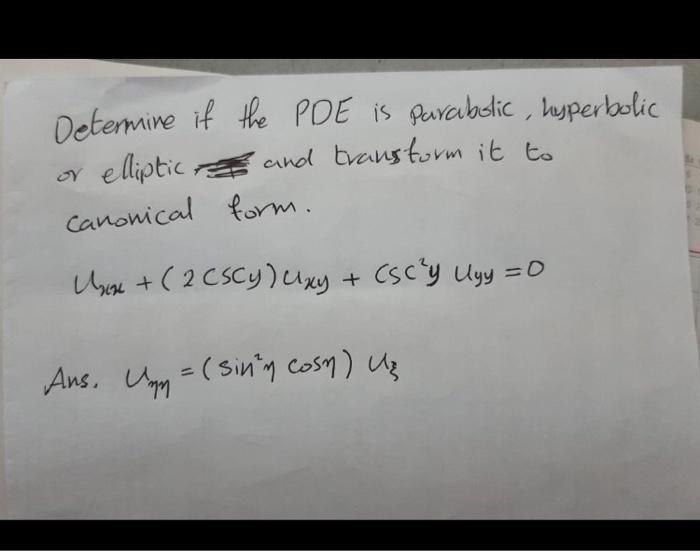 Determine if the PDE is parabolic, hyperbolic
or elliptic and transform it to
canonical form.
Uxx + (2 CSCy) Uxy + CSC²y Uyy = 0
Ans. Uηη = (sin²η cosη) Uξ